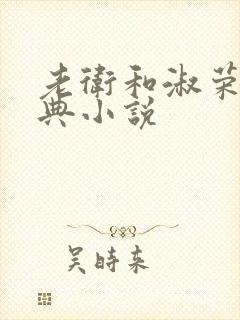 老衛和淑荣
典小説
吴時来